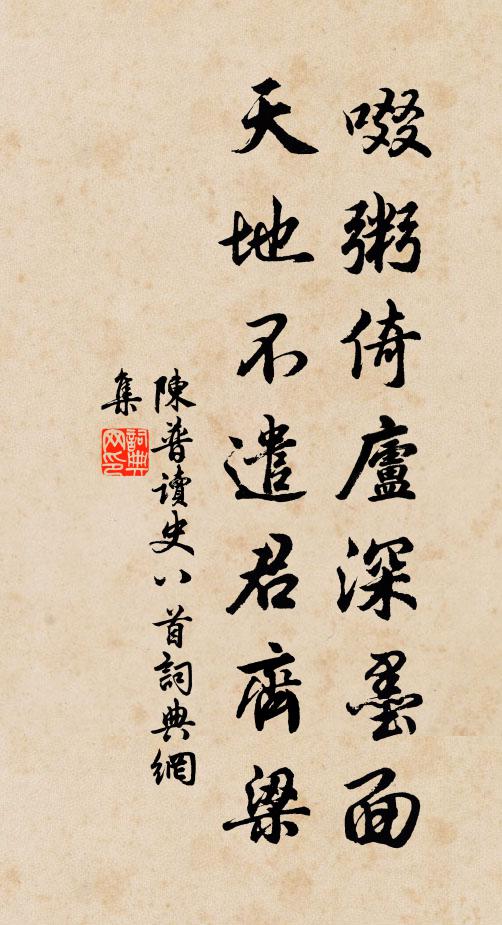 啜粥倚廬深墨面
天地不遣君齊梁
陳普讀史八首詞典網
集
詞典网印